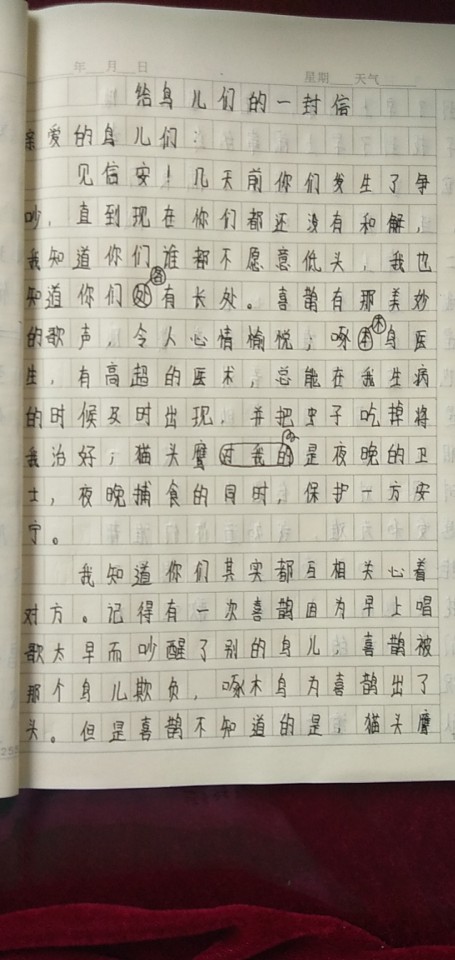 年 月 日
星期 天气
给鸟儿们的一封信
亲爱的鸟儿们：
见信安！几天前你们发生了争
吵，直到现在你们都还没有和解，
我知道你们谁都不愿意低头，我也
知道你们各有长处。喜鹊有那美妙
的歌声，令人心情愉悦；啄木鸟医
生，有高超的医术，总能在我生病
的时候及时出现，并把虫子吃掉将
我治好；猫头鹰对我的是夜晚的卫
士，夜晚捕食的同时，保护一方安
宁。
我知道你们其实都互相关心着
对方。记得有一次喜鹊因为早上唱
歌太早而吵醒了别的鸟儿，喜鹊被
那个鸟儿欺负，啄木鸟为喜鹊出了
头。但是喜鹊不知道的是，猫头鹰